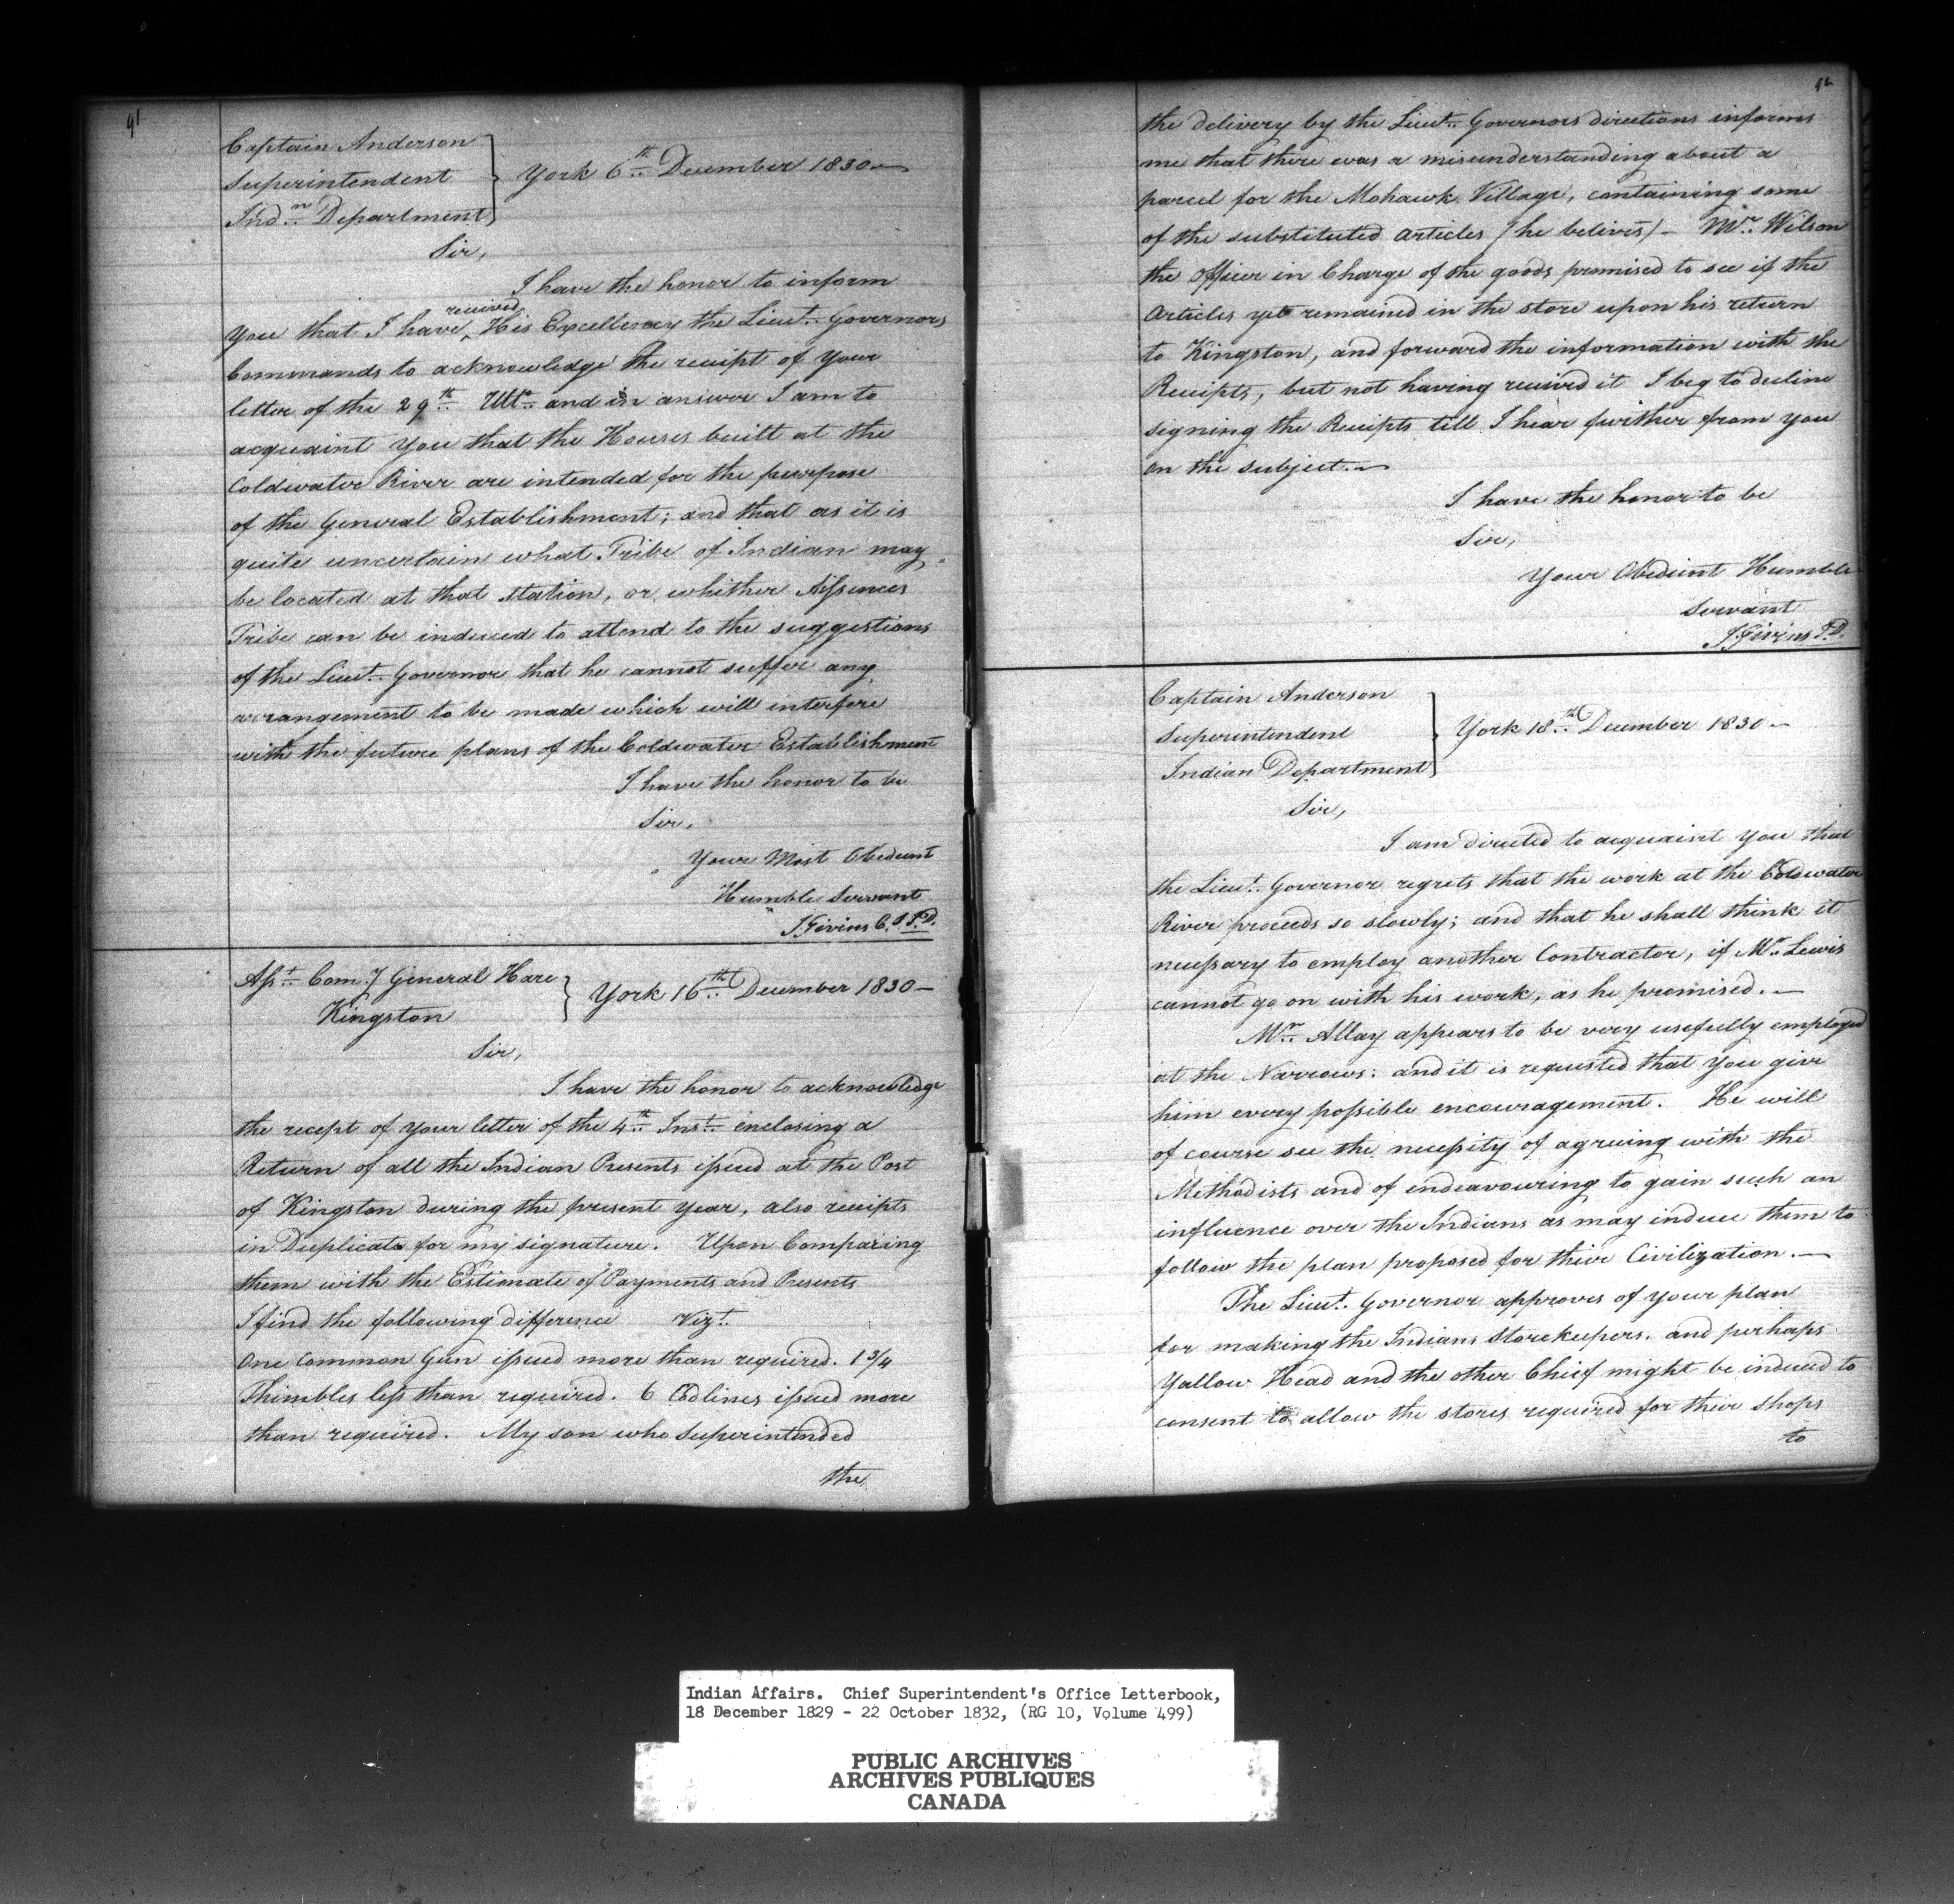 91
Captain Anderson
Superintendent
Indn. Department
York 6th December 1830
Sir,
I have the honor to inform
received
you that I have His Excellency the Lieut. Governors
Commands to acknowledge the receipt of your
letter of the 29th Ulto. and in answer I am to
acquaint you that the Houses built at the
Coldwater River are intended for the purpose
of the General Establishment; and that as it is
quite uncertain what Tribe of Indian may
be located at that Station, or whither Aissences
Tribe can be induced to attend to the suggestions
of the Lieut. Governor that he cannot suffer any
arrangement to be made which will interfere
with the future plans of the Coldwater Establishment
I have the honor to be
Sir,
Your Most Obedient
Humble Servant
J. Givins C.S.I.D.
Asst. Com.y General Hare
Kingston
York 16th December 1830 —
Sir,
I have the honor to acknowledge
the recept of your letter of the 4th Inst. enclosing a
Return of all the Indian Presents issued at the Post
of Kingston during the present year, also receipts
in Duplicate for my signature. Upon Comparing
them with the Estimate of Payments and Presents
I find the following difference Vizt.
One Common Gun issued more than required. 1 3/4
Thimbles less than required. 6 Codlines issued more
than required. My son who Superintended
the
92
the delivery by the Lieut. Governors directions informs
me that there was a misunderstanding about a
parcel for the Mohawk Village, containing some
of the substituted articles (he belives) — Mr. Wilson
the Officer in Charge of the goods promised to see if the
Articles yet remained in the store upon his return
to Kingston, and forward the information with the
Receipts, but not having received it I beg to decline
signing the Receipts till I hear further from you
on the subject. —
I have the honor to be
Sir,
Your Obedient Humble
Servant
J. Givins I.D.
Captain Anderson
Superintendent
Indian Department
York 18th December 1830 —
Sir,
I am directed to acquaint you that
the Lieut. Governor regrets that the work at the Coldwater
River proceeds so slowly; and that he shall think it
necessary to employ another Contractor, if Mr. Lewis
cannot go on with his work, as he promised. —
Mr. Allay appears to be very usefully employed
at the Narrows: and it is requested that you give
him every possible encouragement. He will
of course see the necessity of agreeing with the
Methodists and of endeavouring to gain such an
influence over the Indians as may induce them to
follow the plan proposed for their Civilization. —
The Lieut. Governor approves of your plan
for making the Indians Storekeepers. and perhaps
Yallow Head and the other Chief might be induced to
consent to allow the stores required for their shops
to
Indian Affairs. Chief Superintendent's Office Letterbook,
18 December 1829 - 22 October 1832, (RG 10, Volume 499)
PUBLIC ARCHIVES
ARCHIVES PUBLIQUES
CANADA